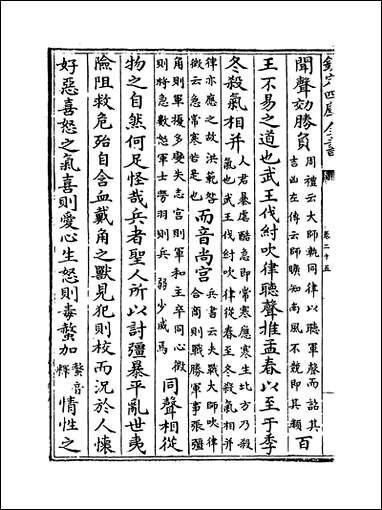 欽定四庫全書 卷二十五
聞聲効勝負周禮云大師執同律以聽軍聲而詔其吉凶左傳云師曠知南風不競即其類百
王不易之道也武王伐紂吹律聽聲推孟春以至于季
冬殺氣相并人君暴虐酷急即常寒應寒生北方乃殺氣也武王伐紂吹律從春至冬殺氣相并
律亦應之故洪範咎徴云急常寒若是也而音尚宮兵書云夫戰大師吹律合商則戰勝軍事張彊
角則軍擾多變失志宮則軍和主卒同心徴則將急數怒軍士勞羽則兵弱少威焉同聲相從
物之自然何足怪哉兵者聖人所以討彊暴平亂世夷
險阻救危殆自含血戴角之獸見犯則校而況於人懷
好惡喜怒之氣喜則愛心生怒則毒螫加螫音釋情性之